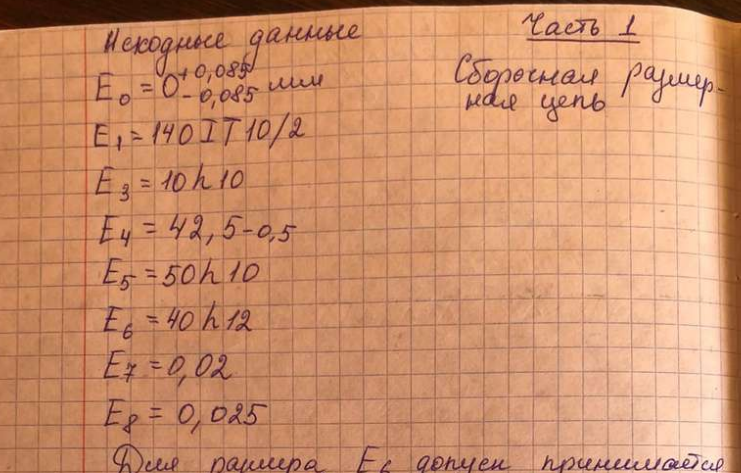 Исходные данные
Часть 1
E₀ = 0 +0,085 -0,085 мм
Сборочная размер-
ная цепь
E₁ = 140 IT 10/2
E₃ = 10 h 10
E₄ = 42,5-0,5
E₅ = 50 h 10
E₆ = 40 h 12
E₇ = 0,02
E₈ = 0,025
Для размера E₆ допуск принимается